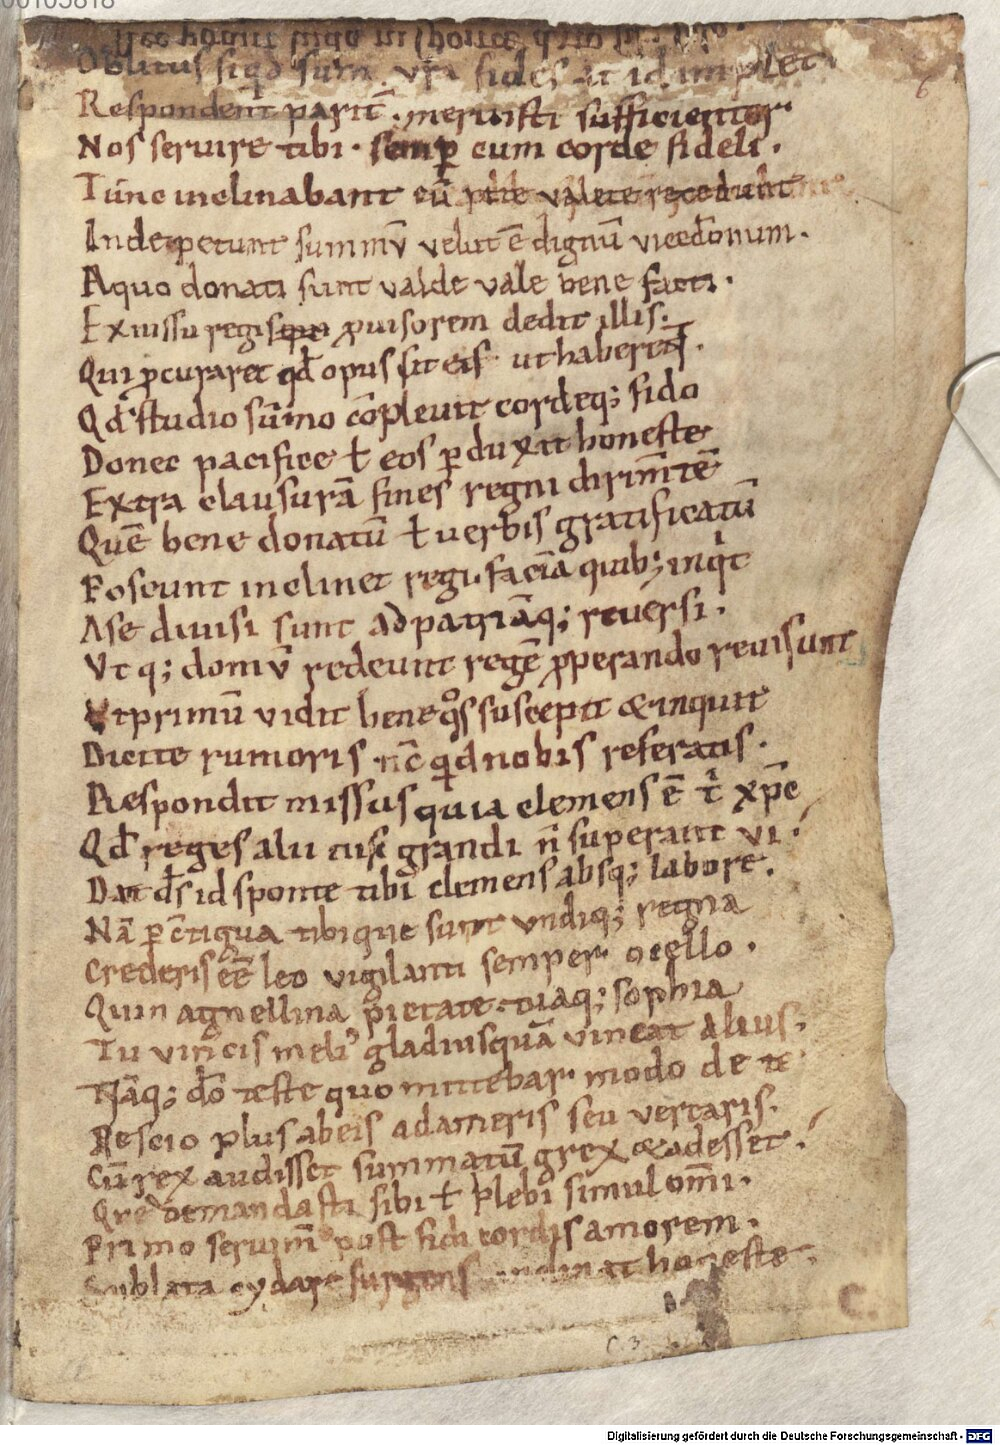 00103818
6
Oblitus siqd sum. vr̄a fides ut id implet.
Respondent parit̄. meruisti sufficienter
Nos seruire tibi. semp̄ cum corde fideli.
Tunc inclinabant cū valete recedunt
Inde petunt summū velut ē dignū vicedomnum.
A quo donati sunt valde vale bene facti.
Ex iussu regis p̄uisorem dedit illis.
Qui p̄curaret qd̄ opus sit eis ut haberet̄.
Qd̄ studio sūmo cōpleuit cordeq; fido
Donec pacifice ł eos p̄duxit honeste
Extra clausurā fines regni dirimētē
Quē bene donatū ł uerbis gratificatū
Poscunt inclinet regi. faciā quib; inq̍t
A se diuisi sunt ad patriāq; reuersi.
Vtq; domū redeunt regē p̄perando reuisunt
Vt primū vidit bene q̊s suscepit & inquit
Dicite rumoris nc̄ qid nobis referatis.
Respondit missus quia clemens ē t̍ xp̄e
Qd̄ reges alii cusi grandi n̄ superant vi.
Dat ds̄ id sponte tibi clemens absq; labore.
Nā p̄ c̄tigua tibi que sunt vndiq; regna
Crederis eē leo vigilanti semper ocello.
Quin agnellina pietate. tuaq; sophia
Tu vincis meli᾽ gladius quā vincat alius.
Nāq; dō teste quo mittebar modo de te
Nescio plus abeis adameris seu vertaris.
Cū rex audisset summatū grex & adesset.
Qre demandasti sibi ł plebi simul omī.
Primo seruim̄ post fidi cordis amorem.
Sublata cydare surgens inclinat honeste.
C.
C. 3
Digitalisierung gefördert durch die Deutsche Forschungsgemeinschaft - DFG